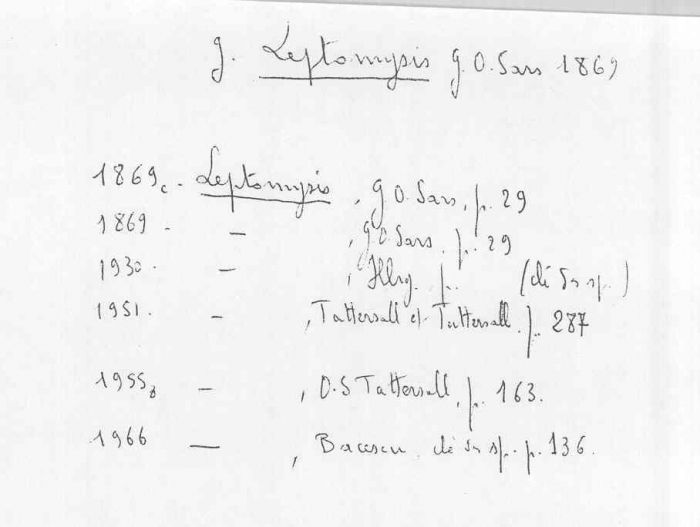 g. Leptomysis G.O. Sars 1869
1869c. Leptomysis, G.O. Sars, p. 29
1869. — , G.O. Sars. p. 29
1930. — , Illig. p. (clé sp.)
1951. — , Tattersall et Tattersall. p. 287
1955b — , O.S Tattersall, p. 163.
1966 — , Bacescu clé sp. p. 136.